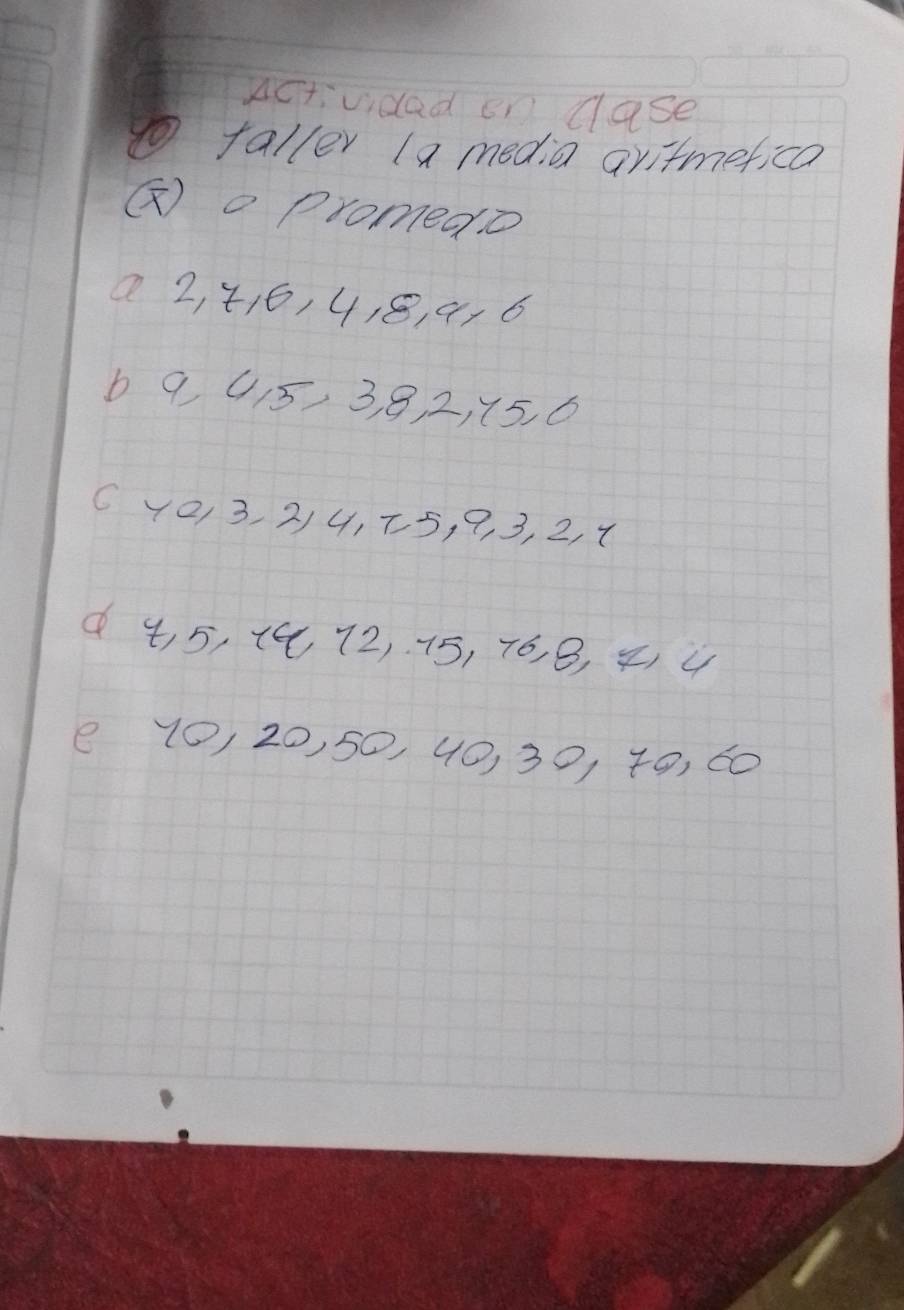 Actividad en clase
① Taller la media aritmetica
(x̄) o promedio
a 2, 7, 6, 4, 8, 9, 6
b 9, 4, 5, 3, 8, 2, 15, 6
c 10, 3, 2, 4, 15, 9, 3, 2, 1
d 7, 5, 14, 12, 15, 16, 8, 7, 4
e 10, 20, 50, 40, 30, 70, 60